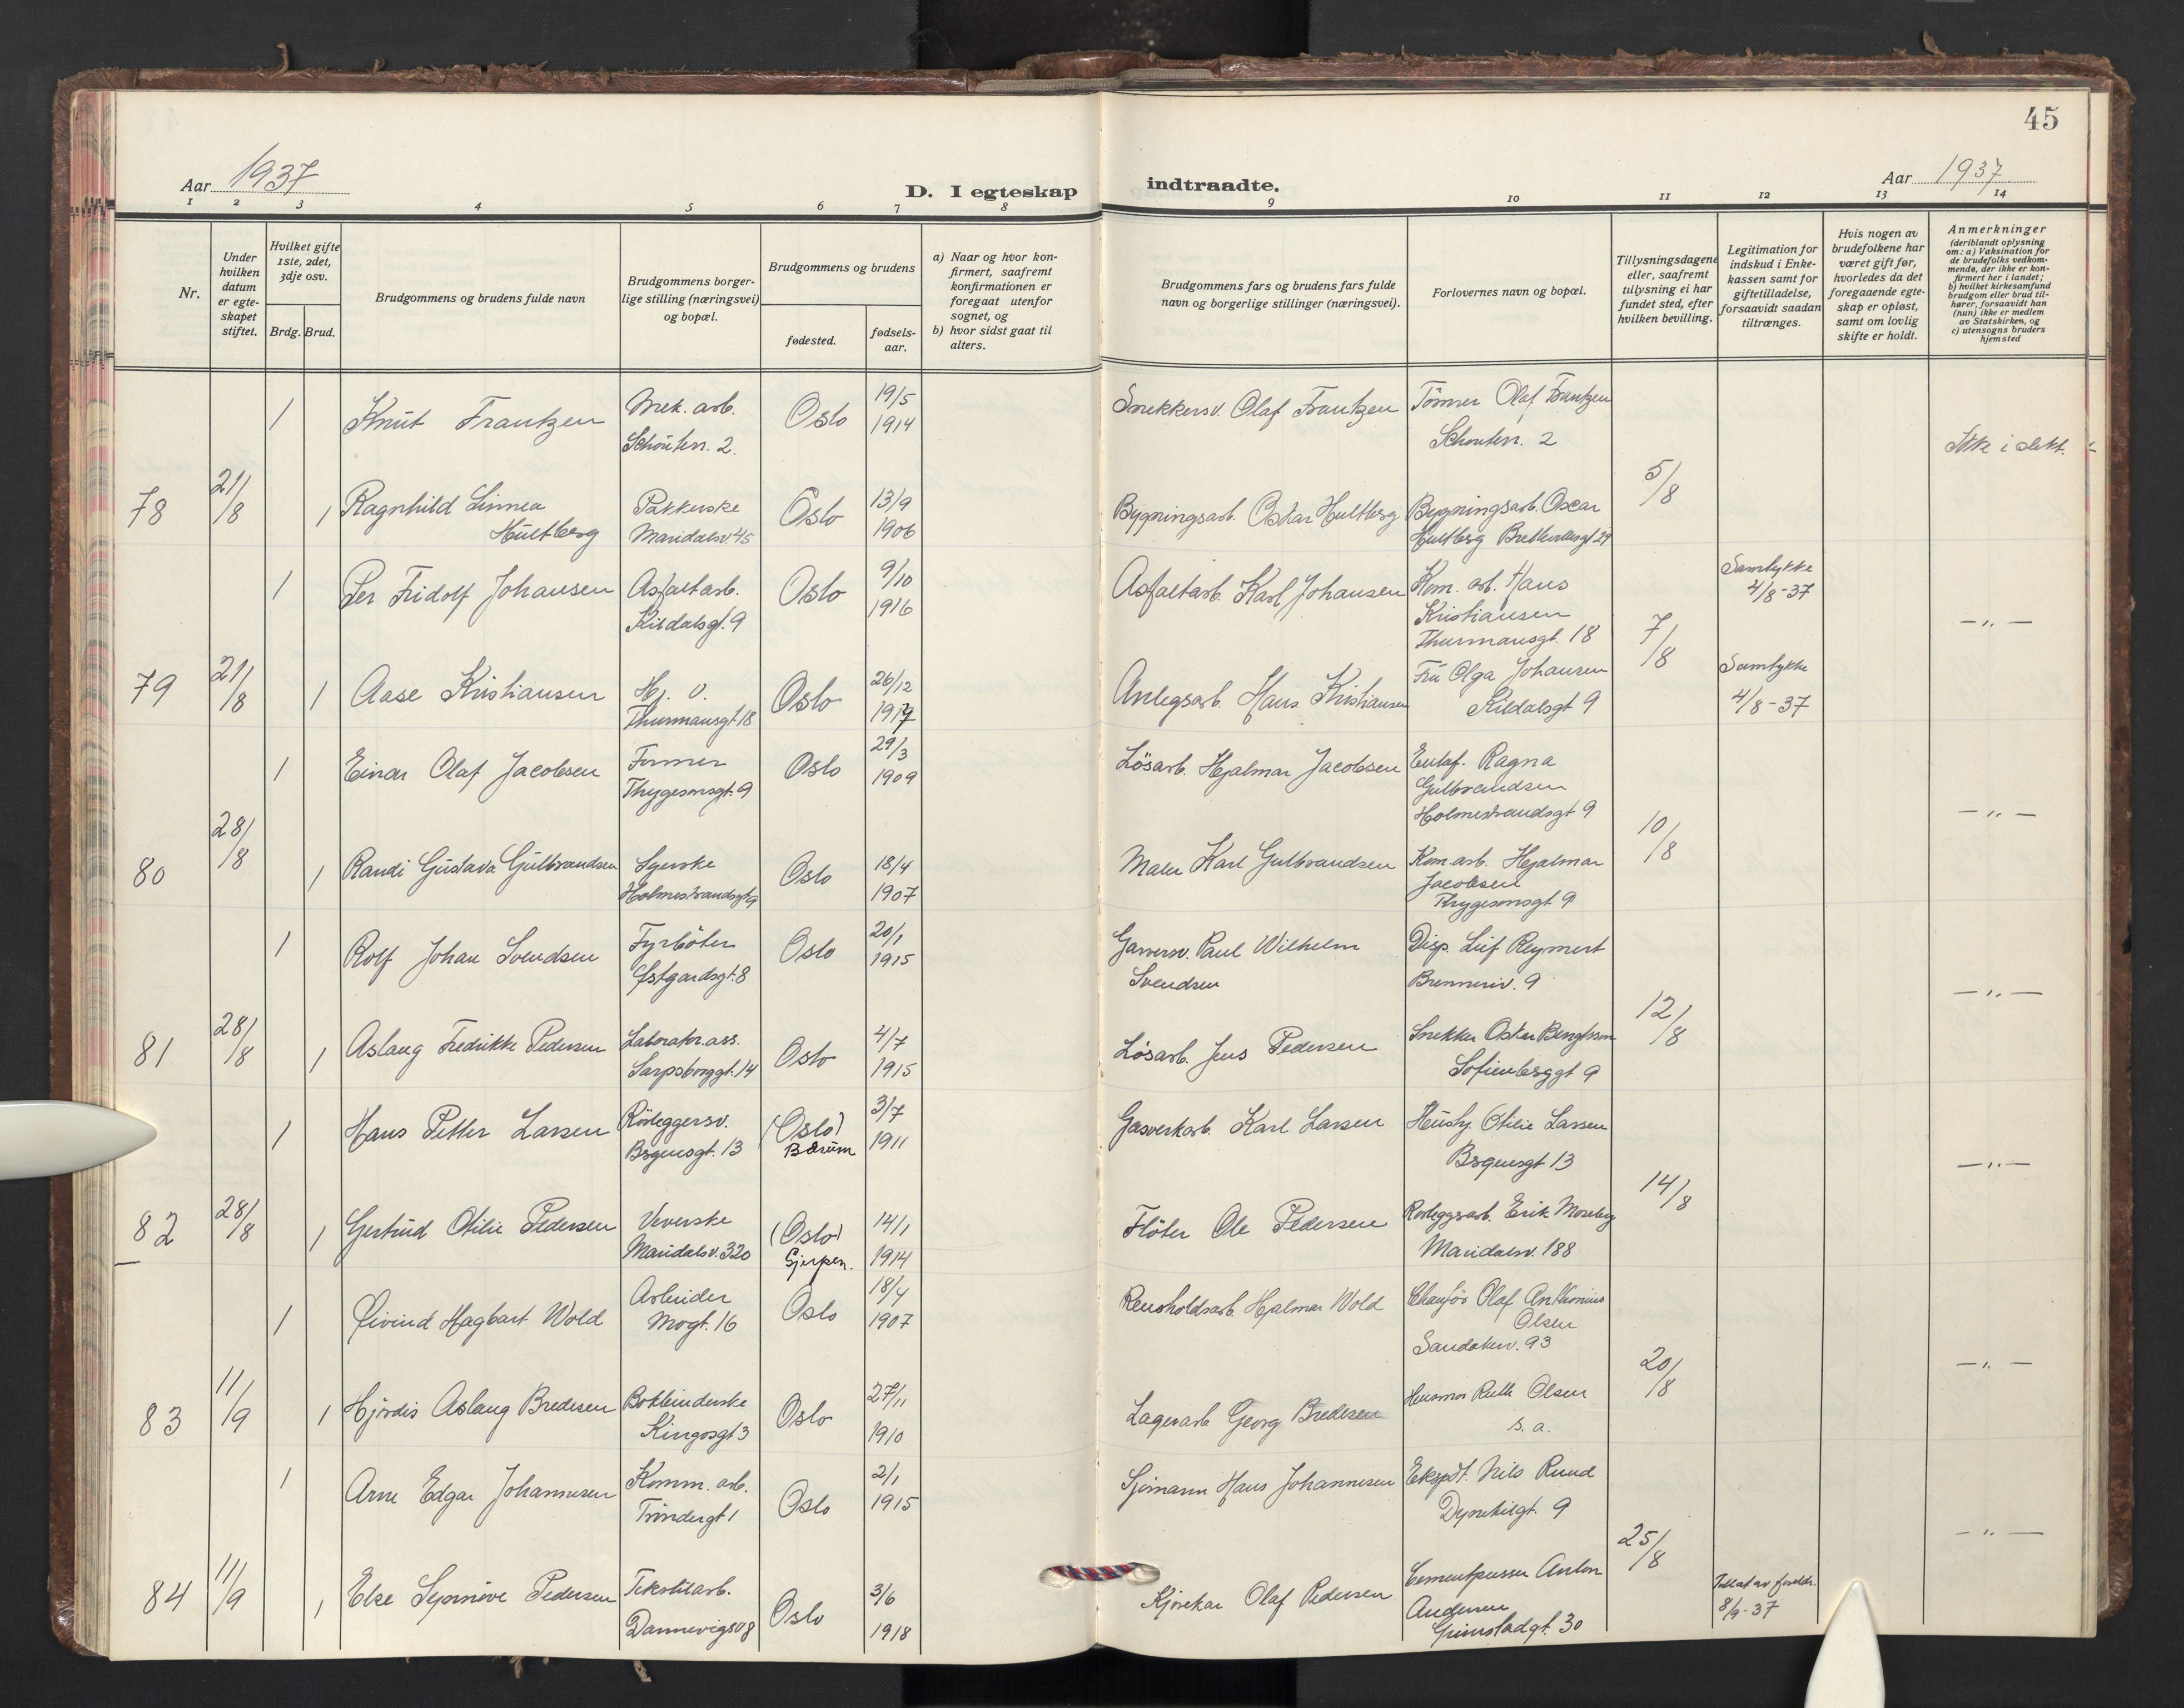 45
Aar 1937
D. I egteskap indtraadte.
Aar 1937
1 2 3 4 5 6 7 8 9 10 11 12 13 14
Nr.
Under hvilken datum er egteskapet stiftet.
Hvilket gifte 1ste, 2det, 3dje osv.
Brdg. Brud.
Brudgommens og brudens fulde navn
Brudgommens borgerlige stilling (næringsvei) og bopæl.
Brudgommens og brudens
fødested.
fødselsaar.
a) Naar og hvor konfirmert, saafremt konfirmationen er foregaat utenfor sognet, og
b) hvor sidst gaat til alters.
Brudgommens fars og brudens fars fulde navn og borgerlige stillinger (næringsvei).
Forlovernes navn og bopæl.
Tillysningsdagene eller, saafremt tillysning ei har fundet sted, efter hvilken bevilling.
Legitimation for indskud i Enkekassen samt for giftetilladelse, forsaavidt saadan tiltrænges.
Hvis nogen av brudefolkene har været gift før, hvorledes da det foregaaende egteskap er opløst, samt om lovlig skifte er holdt.
Anmerkninger
(deriblandt oplysning om: a) Vaksination for de brudefolks vedkommende, der ikke er konfirmert her i landet; b) hvilket kirkesamfund brudgom eller brud tilhører, forsaavidt han (hun) ikke er medlem av Statskirken, og c) utensogns bruders hjemsted
1 Knut Frantzen Mek. arb. Schouten. 2. Oslo 19/5 1914 Snekkersv. Olaf Frantzen Tömmer Olaf Frantzen Schouten. 2 Ikke i slekt.
78 21/8 1 Ragnhild Linnea Hultberg Pakkerske Maridalsv. 45 Oslo 13/9 1906 Bygningsarb. Oskar Hultberg Bygningsarb. Oscar Hultberg 29 5/8
1 Per Fridolf Johansen Asfaltarb. Kildalsgt. 9 Oslo 9/10 1916 Asfaltarb. Karl Johansen Kom. arb. Hans Kristiansen Thurmansgt. 18 Samtykke 4/8-37 — „ —
79 21/8 1 Aase Kristiansen Hj. v. Thurmansgt 18 Oslo 26/12 1917 Anlegsarb. Hans Kristiansen Fru Olga Johansen Kildalsgt 9 7/8 Samtykke 4/8-37
1 Einar Olaf Jacobsen Former Thygesonsgt. 9 Oslo 29/3 1909 Lösarb. Hjalmar Jacobsen Ragna Gulbrandsen Holmestrandsgt 9 — „ —
80 28/8 1 Randi Gustava Gulbrandsen Syerske Holmestrandsgt 9 Oslo 18/4 1907 Maler Karl Gulbrandsen Kom. arb. Hjalmar Jacobsen Thygesonsgt 9 10/8
1 Rolf Johan Svendsen Fyrböter Østgardsgt. 8 Oslo 20/1 1915 Garversv. Paul Wilhelm Svendsen Disp. Leif Reymert Brenneriv. 9 — „ —
81 28/8 1 Aslaug Fredrikke Pedersen Laborator. ass. Sarpsborggt. 14 Oslo 4/7 1915 Lösarb. Jens Pedersen Snekker Oskar Bengtson Sofienberggt 9 12/8
1 Hans Petter Larsen Rörleggersv. Bergensgt. 13 (Oslo) Bærum 3/7 1911 Gasverkarb. Karl Larsen Otilie Larsen Bergensgt 13 — „ —
82 28/8 1 Gertrud Otilie Pedersen Veverske Maridalsv. 320 (Oslo) Gjerpen. 14/1 1914 Flöter Ole Pedersen Rörleggerarb. Erik Moseberg Maridalsv. 188 14/8
1 Øivind Hagbart Wold Arbeider Mogt. 16 Oslo 18/4 1907 Renholdsarb. Hjalmar Wold Chauför Olaf Anthonius Olsen Sandakerv. 93 — „ —
83 11/9 1 Hjördis Aslaug Bredesen Bokbinderske Kingosgt 3 Oslo 27/11 1910 Lagerarb Georg Bredesen Husmor Ruth Olsen s. a. 20/8
1 Arne Edgar Johannesen Komm. arb. Tröndergt 1 Oslo 2/1 1915 Sjömann Hans Johannesen Ekspdt. Nils Ruud Dynekilgt. 9 — „ —
84 11/9 1 Else Synnöve Pedersen Tekstilarb. Dannevigsv 8 Oslo 3/6 1918 Kjörekar Olaf Pedersen Cementpusser Anton Andersen Grimstadgt. 30 25/8 Tillat av foreldr. 8/9-37